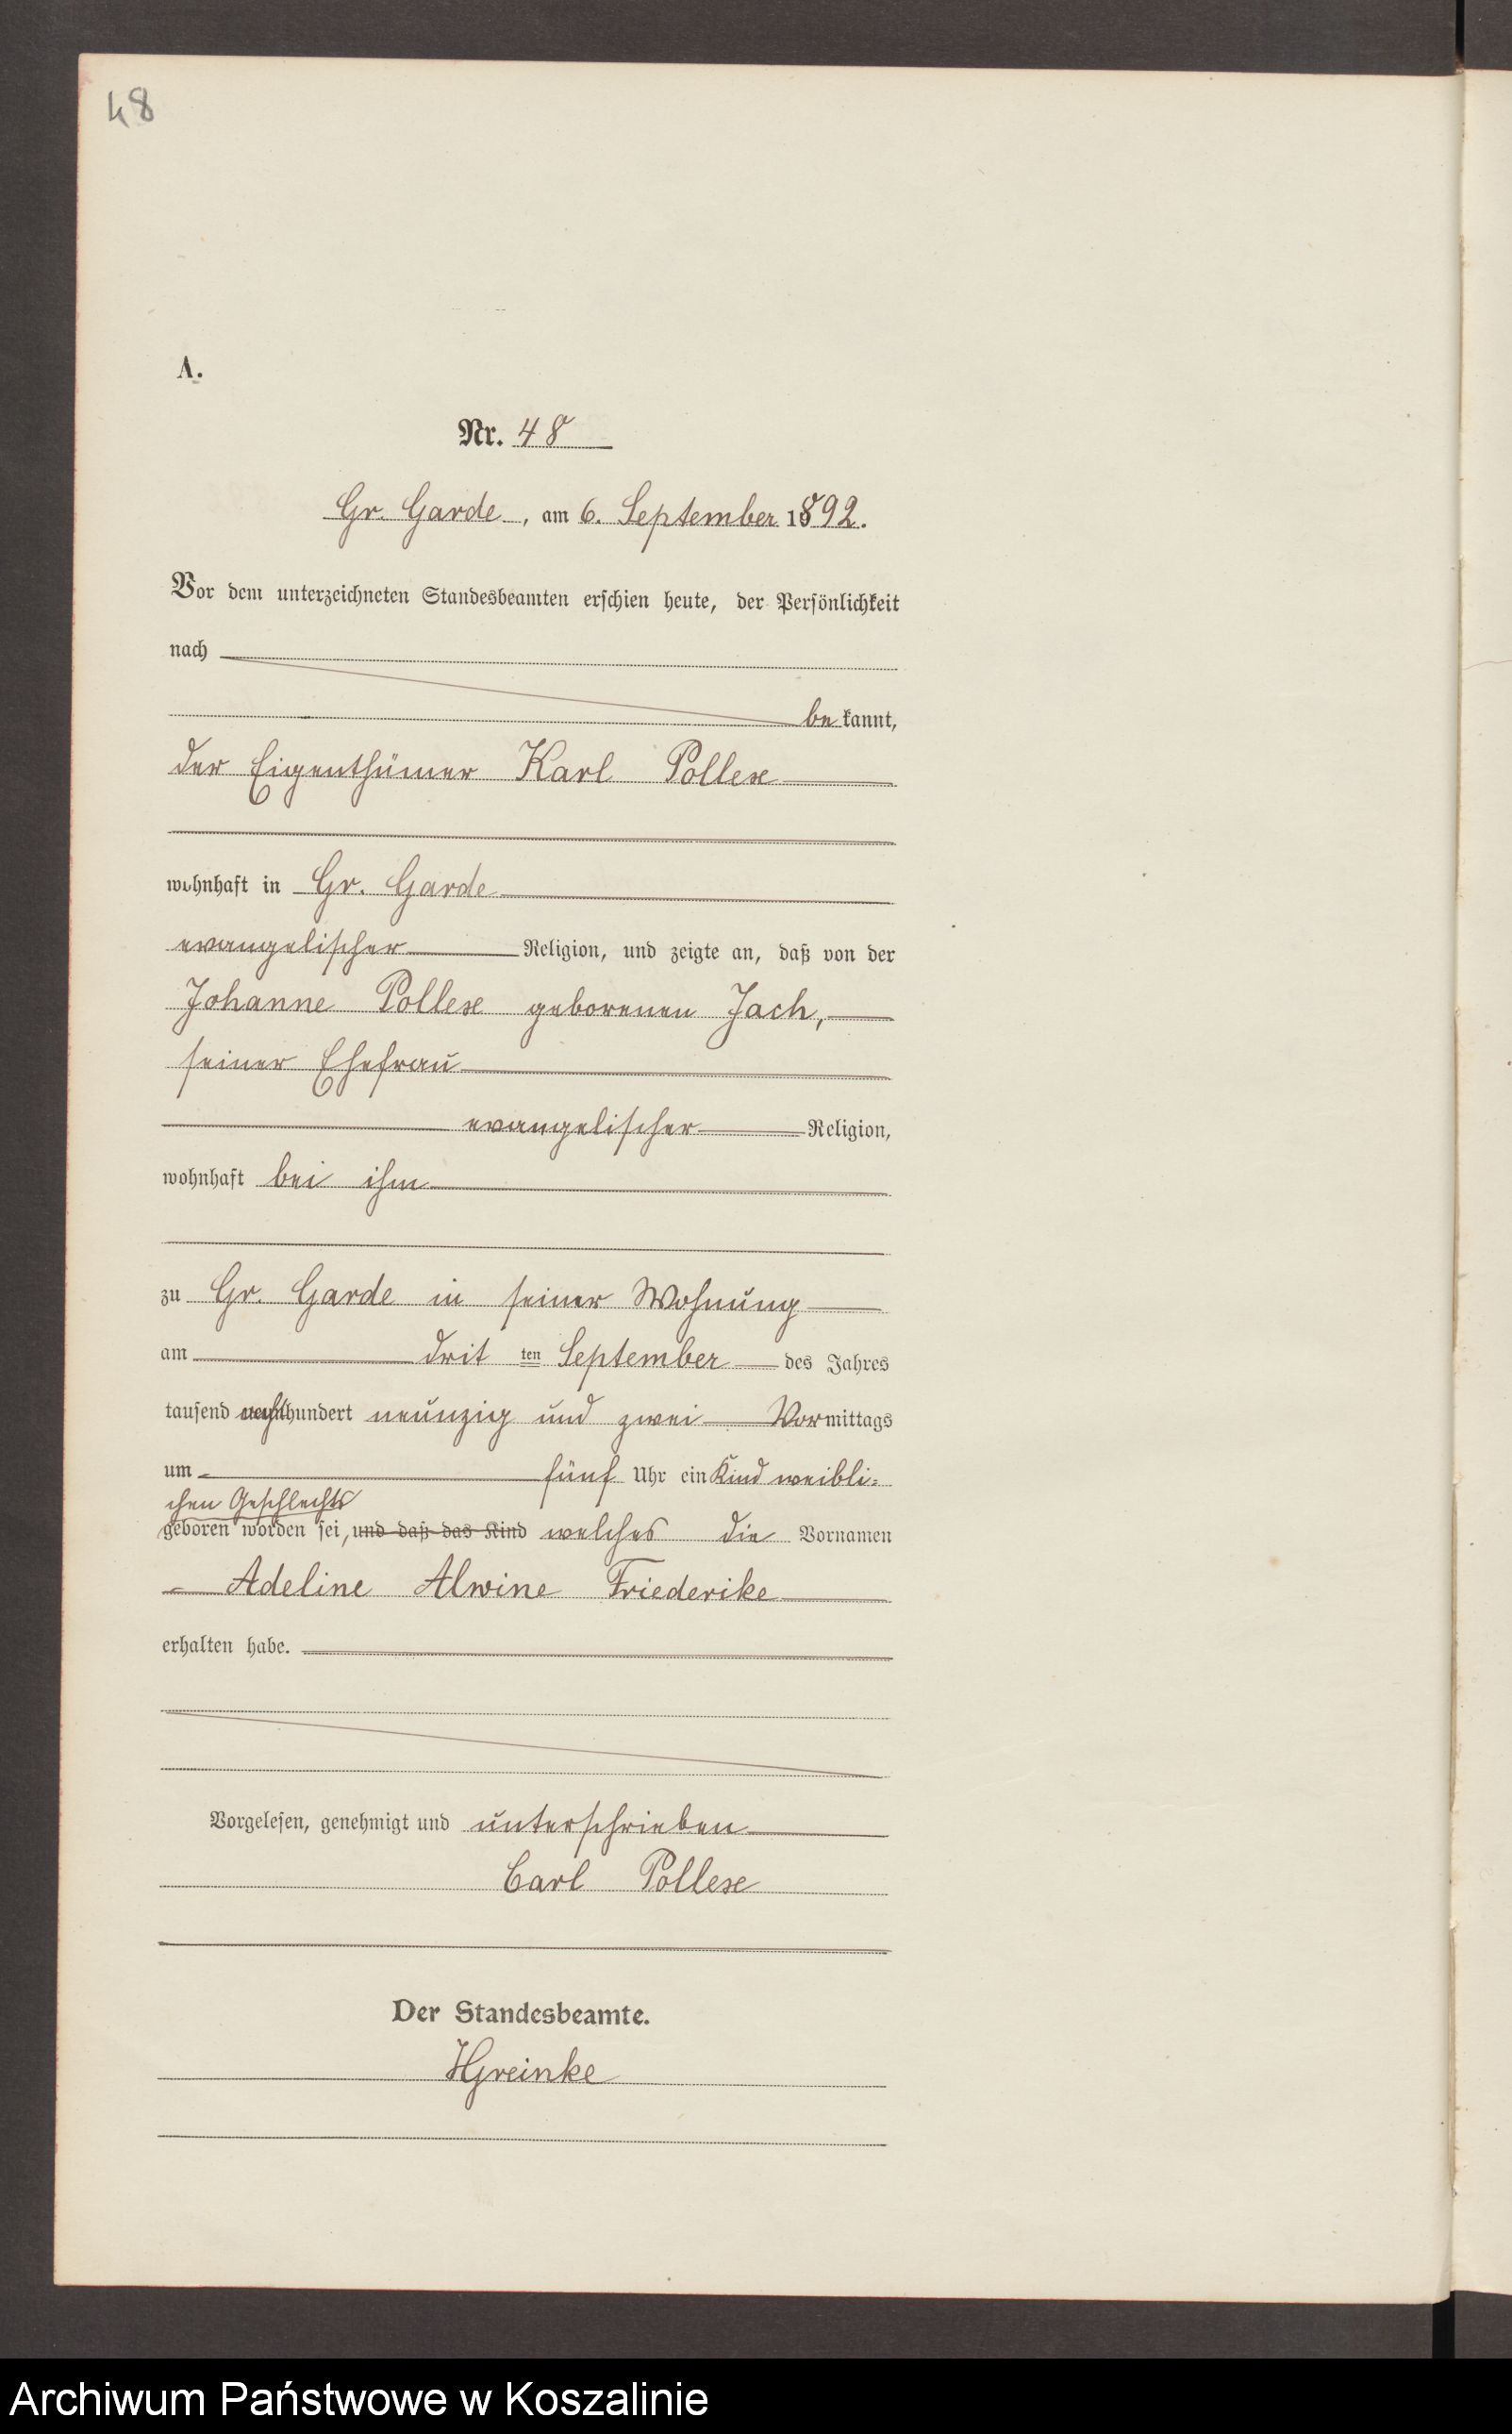 48
A.
Nr. 48
Gr. Garde, am 6. September 1892.
Vor dem unterzeichneten Standesbeamten erschien heute, der Persönlichkeit
nach
bekannt,
der Eigenthümer Karl Pollex
wohnhaft in Gr. Garde
evangelischer Religion, und zeigte an, daß von der
Johanne Pollex geborenen Jach,
seiner Ehefrau
evangelischer Religion,
wohnhaft bei ihm
zu Gr. Garde in seiner Wohnung
am dritten September des Jahres
tausend achthundert neunzig und zwei Vormittags
um fünf Uhr ein Kind weibli=
chen Geschlechts
geboren worden sei, und daß das Kind welches die Vornamen
Adeline Alwine Friederike
erhalten habe.
Vorgelesen, genehmigt und unterschrieben
Carl Pollex
Der Standesbeamte.
HGreinke
Archiwum Państwowe w Koszalinie